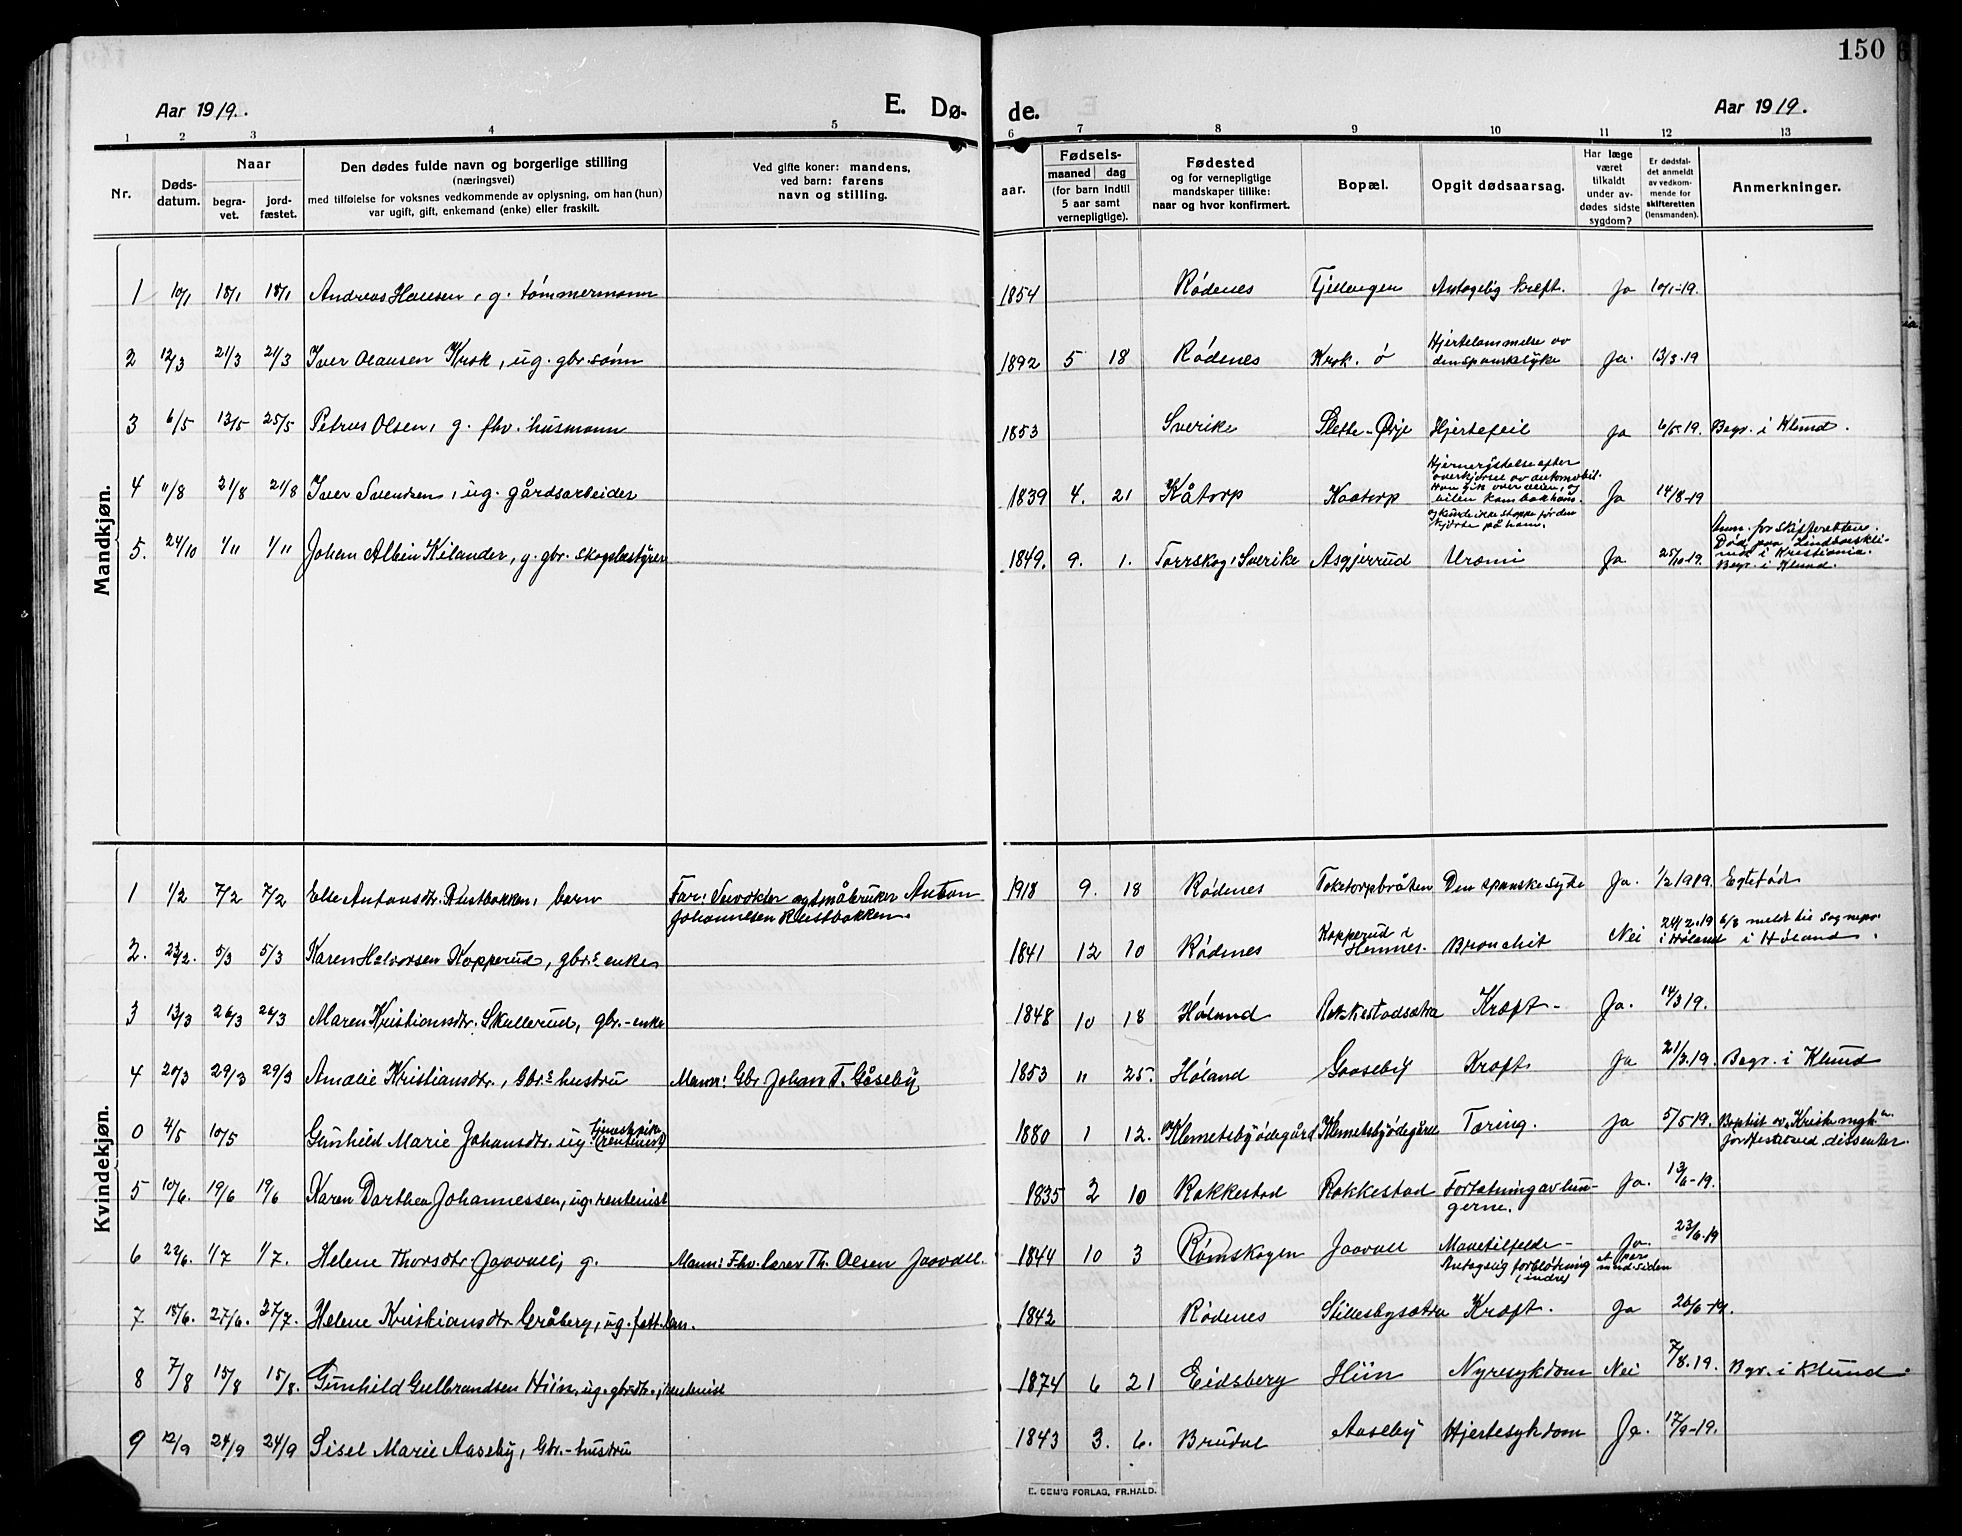 150
Aar 1919.
E. Dø-
de.
Aar 1919.
1 2 3 4 5 6 7 8 9 10 11 12 13
Nr.
Døds-
datum.
Naar
begra-
vet.
jord-
fæstet.
Den dødes fulde navn og borgerlige stilling
(næringsvei)
med tilføielse for voksnes vedkommende av oplysning, om han (hun)
var ugift, gift, enkemand (enke) eller fraskilt.
Ved gifte koner: mandens,
ved barn: farens
navn og stilling.
aar.
Fødsels-
maaned dag
(for barn indtil
5 aar samt
vernepligtige).
Fødested
og for vernepligtige
mandskaper tillike:
naar og hvor konfirmert.
Bopæl.
Opgit dødsaarsag.
Har læge
været
tilkaldt
under av-
dødes sidste
sygdom?
Er dødsfal-
det anmeldt
av vedkom-
mende for
skifteretten
(lensmanden).
Anmerkninger.
Mandkjøn.
1 10/1 18/1 18/1 Andreas Hansen, g. tømmermann 1854 Rødenes Tjellengen Antagelig kreft. Ja 10/1-19.
2 12/3 21/3 21/3 Iver Olausen Krok, ug. gbr. sønn 1892 5 18 Rødenes Krok. ø Hjertelammelse av
den spanske syke Ja. 13/3-19
3 6/5 13/5 25/5 Petrus Olsen, g. fhv. husmann 1853 Sverike Slette-Ørje Hjertefeil Ja 6/5-19. Begr. i Klund.
4 11/8 21/8 21/8 Iver Svendsen, ug. gårdsarbeider 1839 4. 21 Kåtorp Kaatorp Hjernerystelse efter
overkjørsel av automobil.
Han gik over veien, og
bilen kom bak ham
og kunde ikke stoppe før den
kjørte på ham. Ja 14/8-19
5. 24/10 1/11 1/11 Johan Albin Kilander, g. gbr. skogbestyrer 1849. 9. 1. Torrskog, Sverike Asgjerrud Uræmi Ja 25/10-19. Anm. for skifteretten.
Død paa Lindboeskli-
nik i Kristiania.
Begr. i Klund.
Kvindekjøn.
1 1/2 7/2 7/2 Else Antonsdtr. Rustbakken, barn Far: Seivokter og småbruker Anton
Johannesen Rustbakken. 1918 9. 18 Rødenes Toketorpbråten Den spanske syke Ja. 1/2 1919. Egtefødt
2. 23/2. 5/3 5/3 Karen Halvorsen Kopperud, gbrs enke 1841 12 10 Rødenes Kopperud i
Hemnes. Bronchit Nei 24/2.19
i Høland 6/3 meldt til sognepr.
i Høland.
3 13/3 26/3 26/3 Maren Kristiansdtr. Skullerud, gbr.-enke 1848 10 18 Høland Rakkestadsætra Kræft- Ja. 14/3 19.
4 20/3 29/3 29/3 Amalie Kristiansdtr., Gbrs hustru Mann: Gbr Johan T. Gåseby 1853 " 25. Høland Gaaseby Kræft Ja 21/3.19. Begr. i Klund
0 4/5 10/5 Gunhild Marie Johansdtr. ug. (rentenist) 1880 1 12. Klemetsbyødegård Klemetsbyødegård Tæring. Ja 5/5-19. Baptist
dissenter.
5 10/6. 19/6 19/6 Karen Dorthea Johannessen, ug. rentenist 1835 2 10 Rakkestad Rakkestad Forfatning av lun-
gerne. Ja. 13/6-19.
6 22/6. 1/7 1/7. Helene Thorsdtr Jaavall, g. Mann: Fhv. lærer Th. Olsen Jaavall. 1844 10 3 Rømskogen Jaavall Mavetilfelde-
Antagelig forblødning
(indre) Ja.
et par
mnd siden 23/6-19
7 18/6. 27/6. 27/7. Helene Kristiansdtr Gråberg, ug. fatt.lem. 1842 Rødenes Sillebysætra Kræft. Ja 20/6-19.
8 7/8 15/8 15/8. Gunhild Gulbrandsen Hiin, ug. gbrdtr., rentenist 1874 6 21 Eidsberg Hiin Nyresykdom Nei 7/8.19. Bgr. i Klund.
9 12/9 24/9 24/9 Sisel Marie Aaseby, Gbr.-hustru 1843 3. 6. Brudal Aaseby Hjertesykdom Ja. 17/9-19.
E. SEM'S FORLAG, FR.HALD.